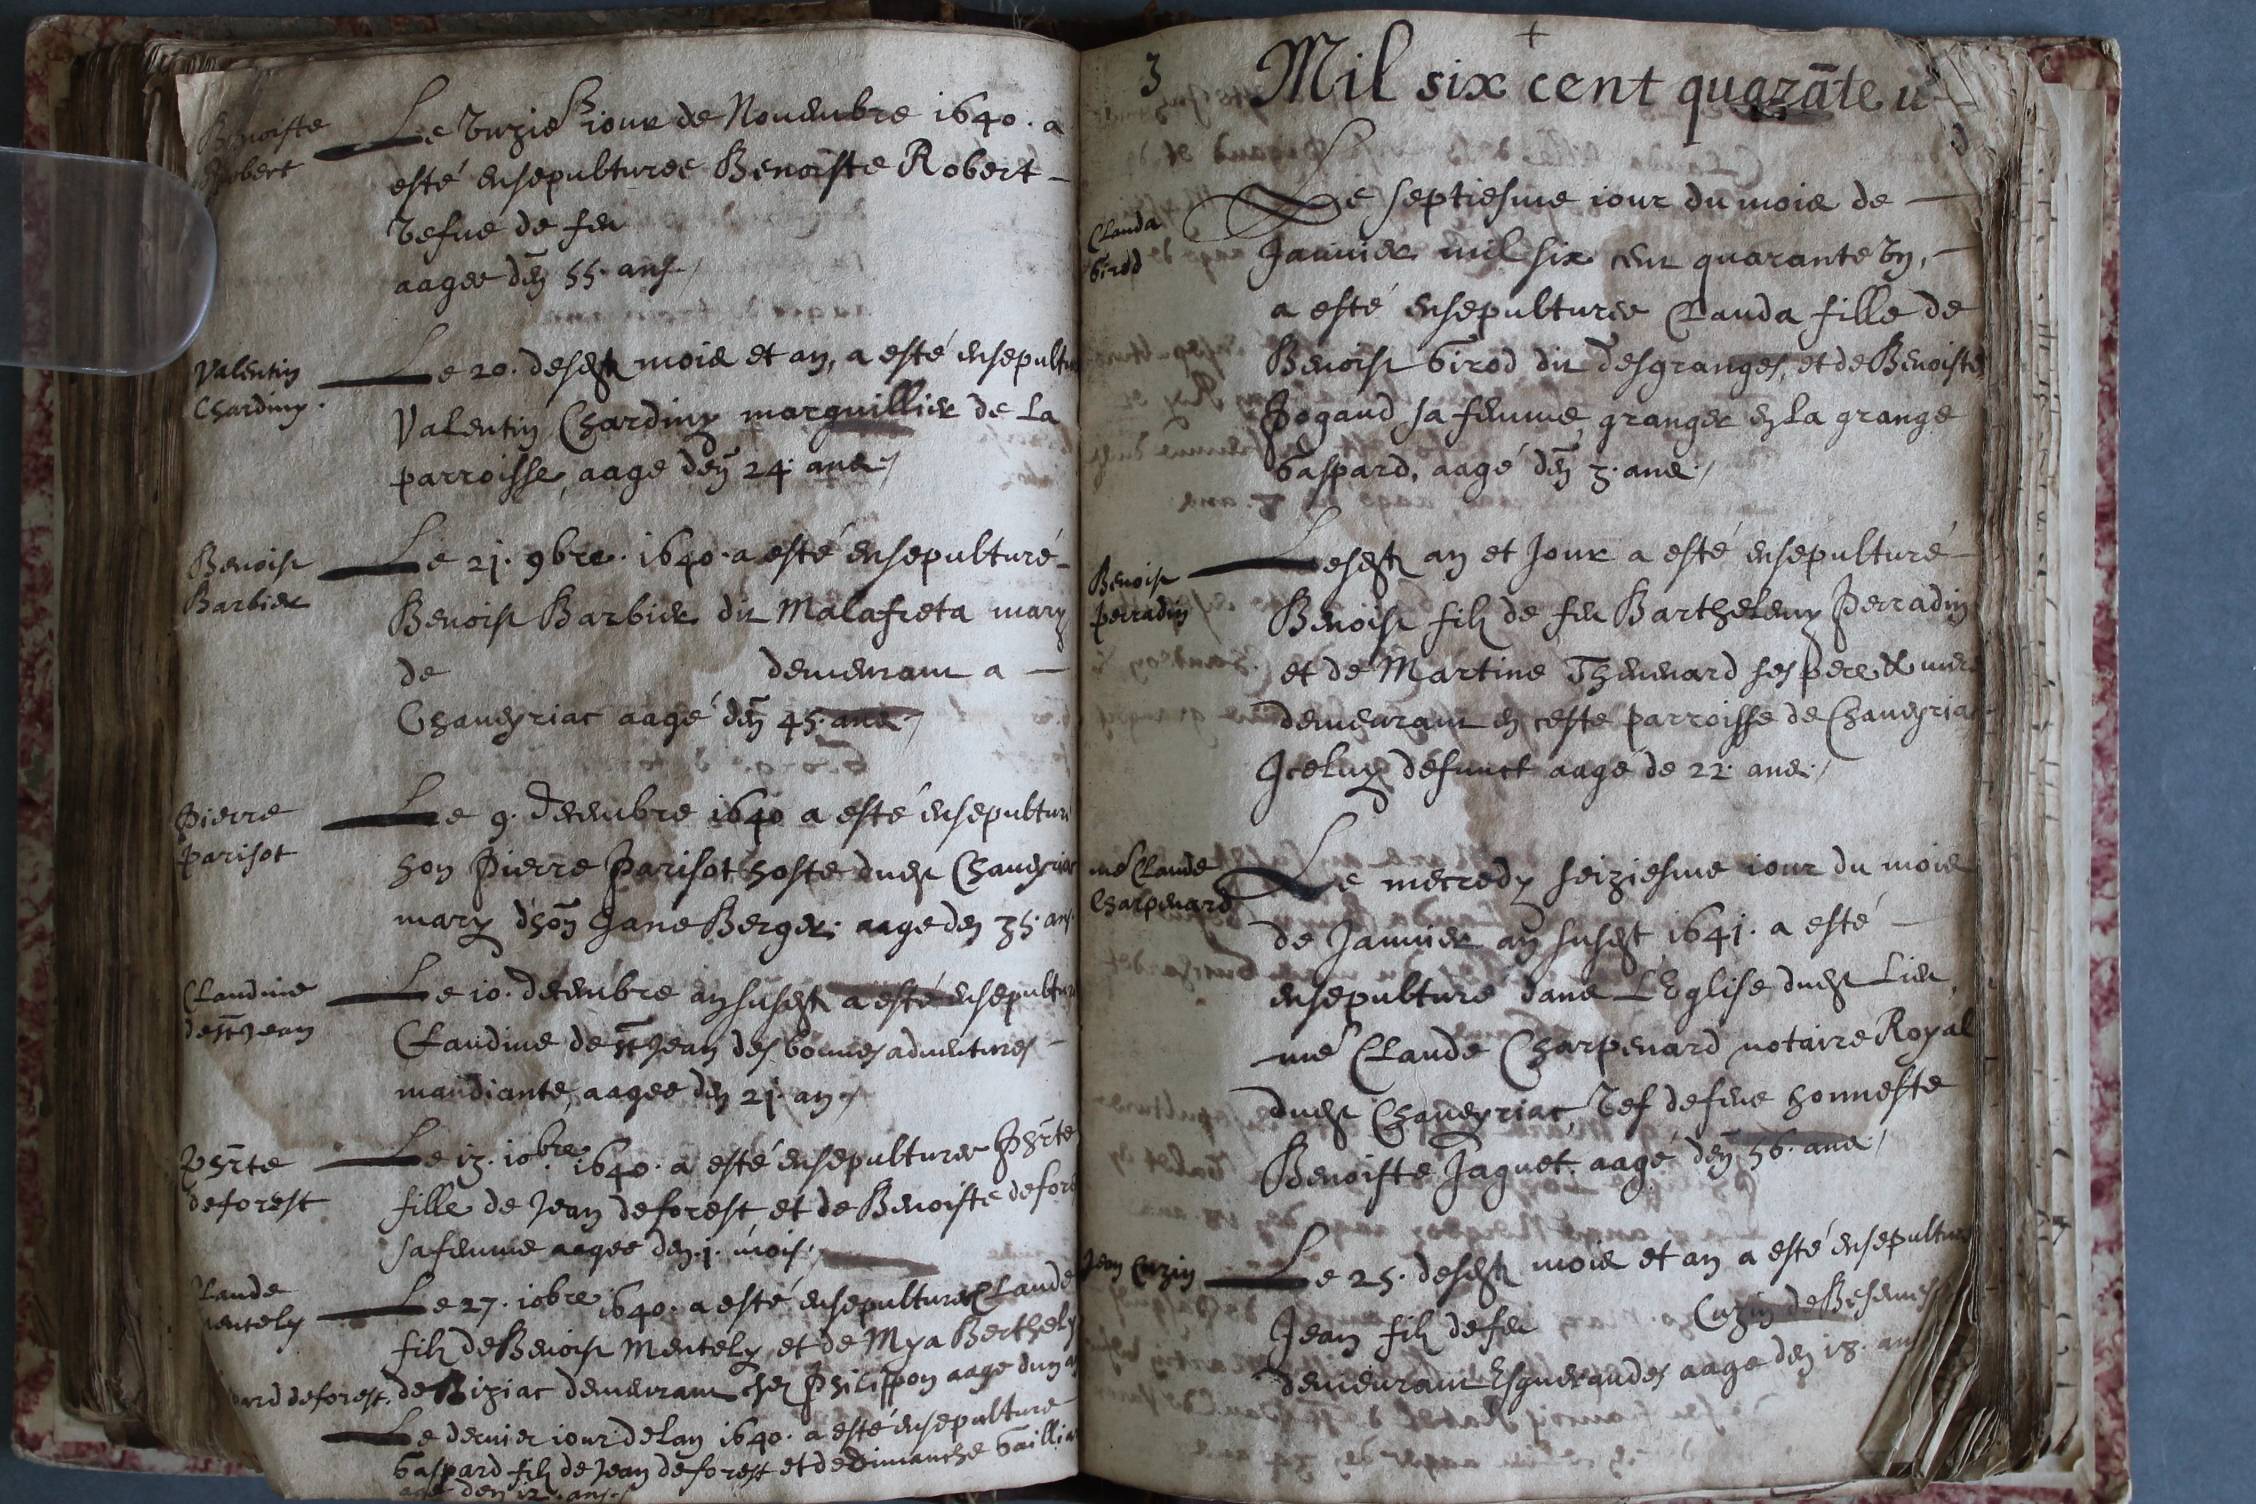 Benoiste
Robert
Le Vnzie jour de Nouembre 1640. a
esté ensepulturee Benoiste Robert
Vefue de feu
aagee d'en 55. ans
Valentin
Chardiny.
Le 20. desdt mois et an, a esté ensepultu
Valentin Chardiny marguillier de la
parroisse, aagé d'en 24. ans
Benoist
Barbier
Le 21. 9bre. 1640. a esté ensepulturé
Benoist Barbier dit Malafreta mary
de demeurant a
Chaueyriac aagé d'en 45. ans
Pierre
Parisot
Le 9. Decembre 1640 a esté ensepultur
hon Pierre Parisot hoste dudt Chaueyriac
mary d'hon Jane Berger. aage den 35. ans
Claudine
de St Jean
Le 10. decembre an susdt a esté ensepultur
Claudine de St Jean des bonnes aduentures
mandiante, aagee den 21. an
Phrte
deforest
Le 13. 10bre 1640. a esté ensepulturee Phrte
fille de Jean deforest, et de Benoiste defore
sa femme aagee den. 1. mois
laude
entely
Le 27. 10bre. 1640. a esté ensepulturé Claude
filz de Benoist Mentely, et de Mya Berthely
de Biziac demeurant chez Philippon aage dun an
ard deforest.
Le dernier iour de lan 1640. a esté ensepulture
Gaspard filz de Jean deforest et de Dimanche Gaillia
aagé den 12. ans
3 Mil six cent quarāte u
Clauda
Girod
Le septiesme iour du mois de
Januier mil six cent quarante Vn,
a esté ensepulturee Clauda fille de
Benoist Girod dit desgranges, et de Benoiste
Pogaud sa femme, granger en la grange
Gaspard, aagé d'en 3. ans
Benoist
Perradin
Lesdt an et Jour a esté ensepulturé
Benoist filz de feu Barthelemy Perradin
et de Martine Theuenard ses pere & mere
demeurant en ceste parroisse de Chaueyriac
Iceluy defunct aagé de 22. ans
me Claude
Charpenard
Le mecredy seiziesme iour du mois
de Januier an susdt 1641. a esté
ensepulturé dans l'Eglise dudt Lieu,
me Claude Charpenard notaire Royal
dudt Chaueyriac, Vef de feue honneste
Benoiste Jaquet. aagé d'en 56. ans
Jean Cuzin
Le 25. desdt mois et an a esté ensepultur
Jean filz de feu Cuzin de
demeurant Esguerandes aage den 18. an